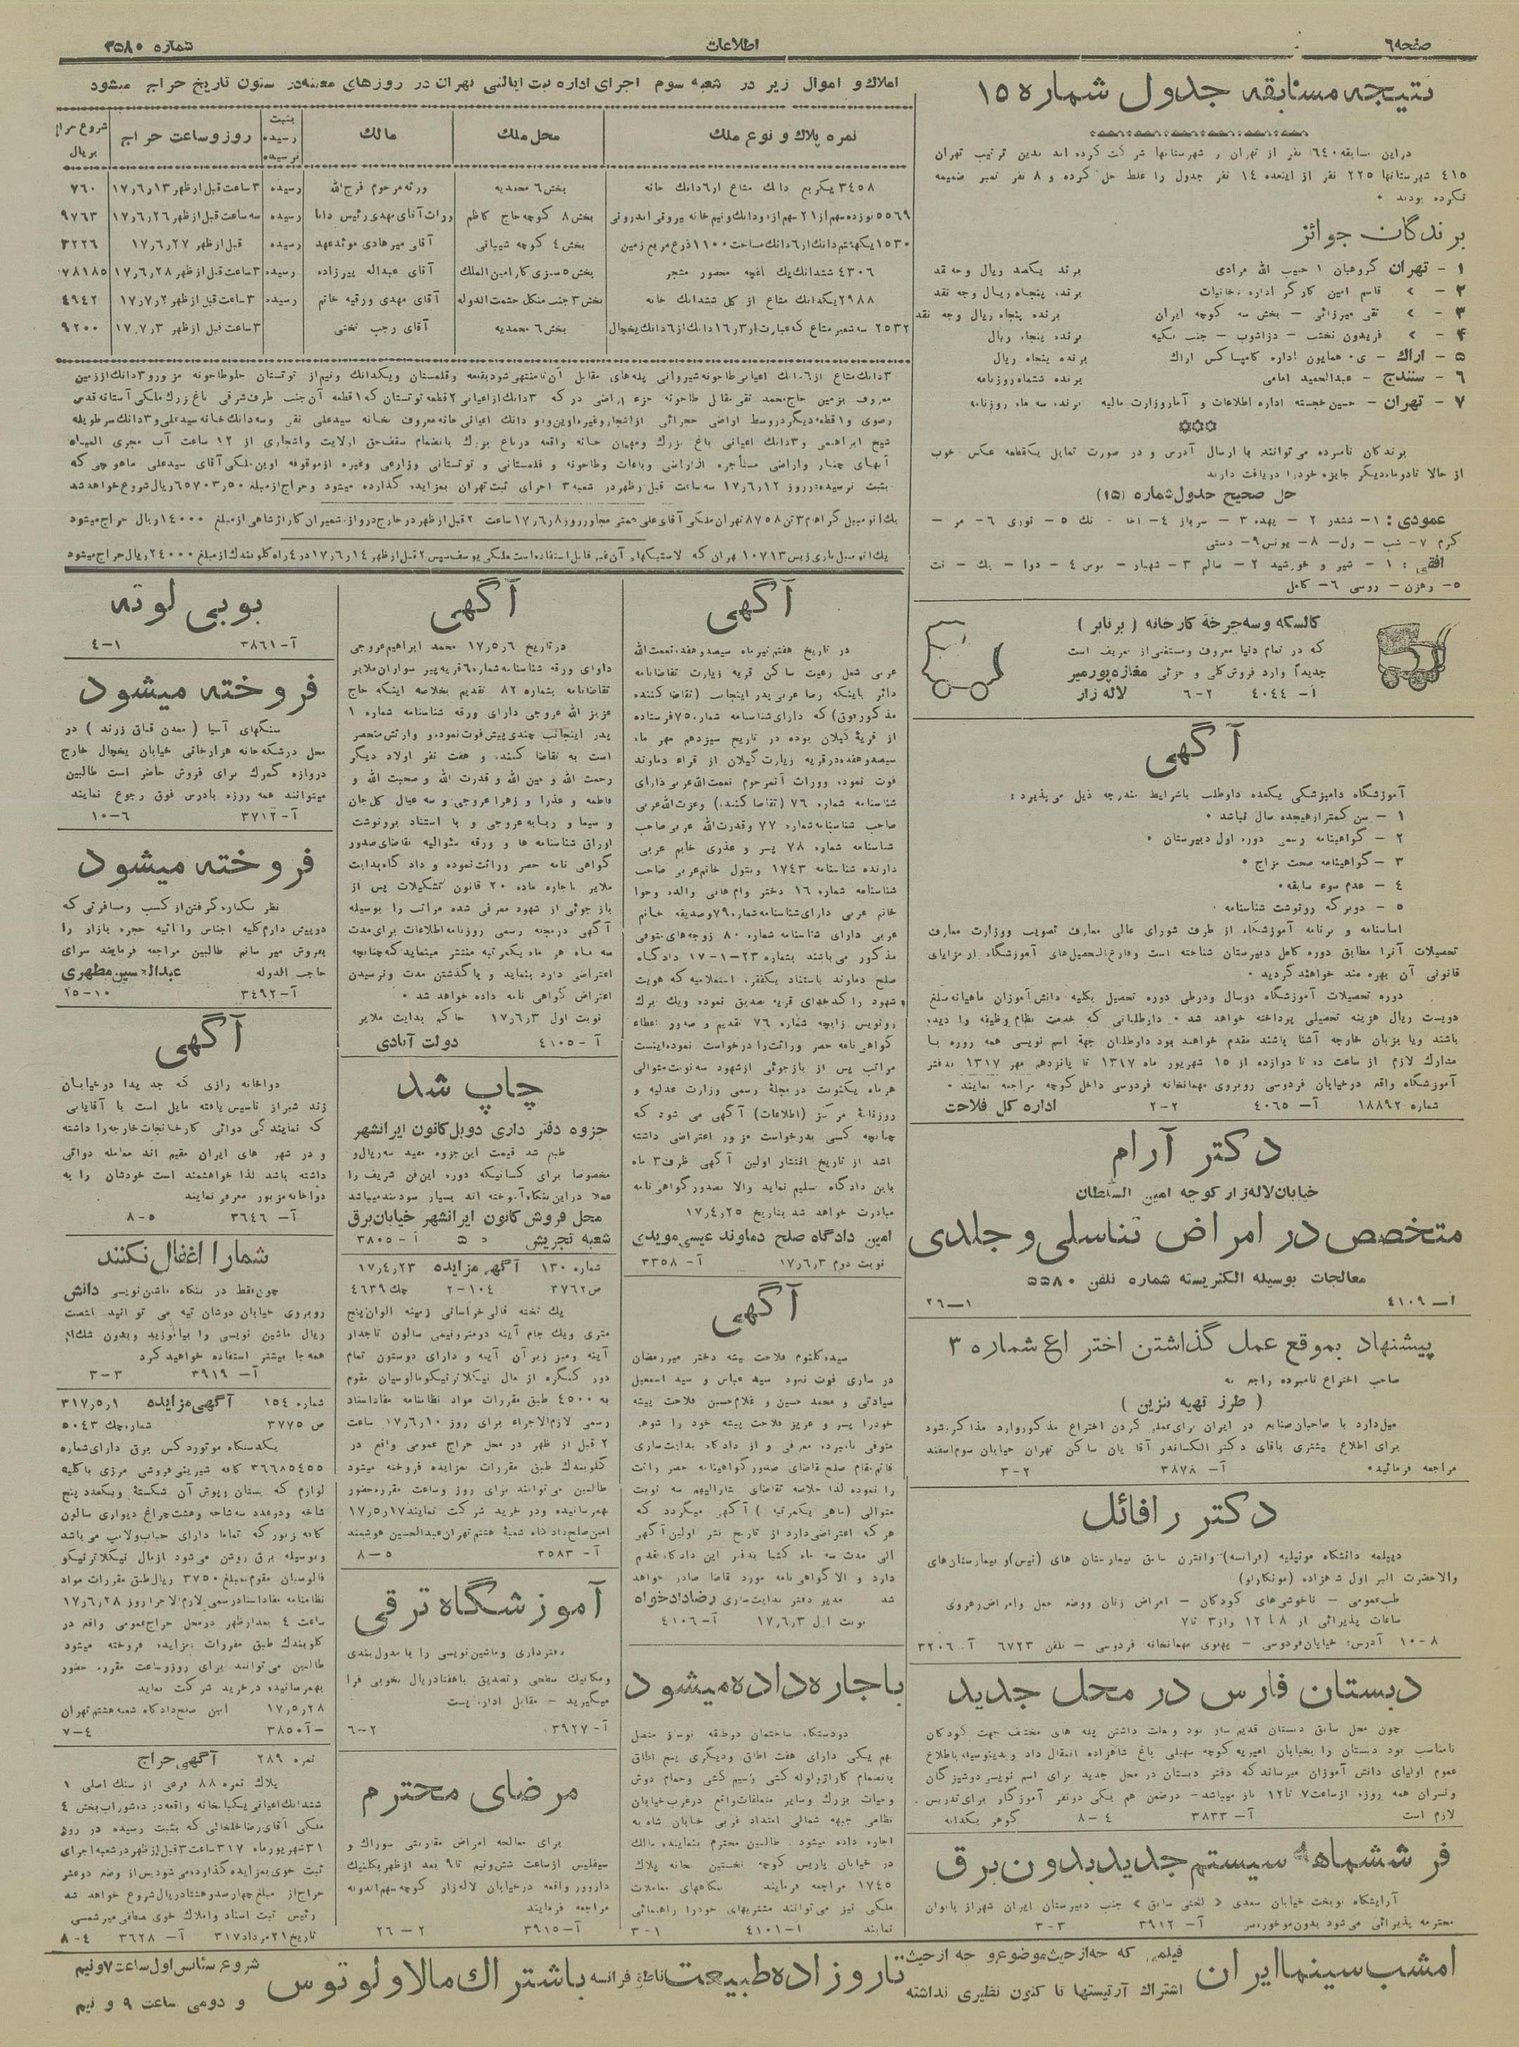 صفحه ۶
اطلاعات
شماره ۳۵۸۰
نتیجه مسابقه جدول شماره ۱۵
دراین مسابقه ۶۴۰ نفر از تهران و شهرستانها شرکت کرده اند بدین ترتیب تهران
۴۱۵ شهرستانها ۲۲۵ نفر از اینعده ۱۴ نفر جدول را غلط حل کرده و ۸ نفر تمبر ضمیمه
نکرده بودند ۰
برندگان جوائز
۱ - تهران گروهبان ۱ حبیب الله مرادی برنده یکصد ریال وجه نقد
۲ - » قاسم امین کارگر اداره دخانیات برنده پنجاه ریال وجه نقد
۳ - » تقی میرزائی - بخش سه کوچه ایران برنده پنجاه ریال وجه نقد
۴ - » فریدون نخشب - دزاشوب - جنب برنده پنجاه ریال
۵ - اراك - ی۰ همایون اداره کامپساکس اراك برنده پنجاه ریال
۶ - سنندج - عبدالحمید امامی برنده ششماه روزنامه
۷ - تهران - حسین خجسته اداره اطلاعات و آمار وزارت مالیه برنده سه ماه روزنامه
برندگان نامبرده می توانند با ارسال آدرس و در صورت تمایل یکقطعه عکس خوب
از حالا تادوماه دیگر جایزه خود را دریافت دارند
حل صحیح جدول شماره (۱۵)
عمودی : ۱- ششدر ۲ - یهده ۳ - سرباز ۴- نك ۵ - نوری ۶- مر -
کرم ۷- شب - ول- ۸- یونس ۹- دستی
افقی : ۱ - شیر و خورشید ۲ - سالم ۳ - شهباز - موس ۴ - دوا - بك - نت
۵- رهزن - روسی ۶- کامل
کالسکه وسه چرخه کارخانه ( برنابر )
که در تمام دنیا معروف ومستغنی از تعریف است
جدیداً وارد فروش کلی و جزئی مغازه پورمیر
آ- ۴۰۴۴ ۲-۶ لاله زار
آگهی
آموزشگاه دامپزشکی یکعده داوطلب باشرایط مندرجه ذیل می پذیرد :
۱ - سن کمتر از هیجده سال نباشد ۰
۲ - گواهینامه رسمی دوره اول دبیرستان ۰
۳ - گواهینامه صحت مزاج ۰
۴ - عدم سوء سابقه ۰
۵ - دوبرگه رونوشت شناسنامه ۰
اساسنامه و برنامه آموزشگاه از طرف شورای عالی معارف تصویب ووزارت معارف
تحصیلات آنرا مطابق دوره کامل دبیرستان شناخته است وفارغ التحصیل های آموزشگاه از مزایای
قانونی آن بهره مند خواهند گردید ۰
دوره تحصیلات آموزشگاه دوسال ودرطی دوره تحصیل بکلیه دانش آموزان ماهیانه مبلغ
دویست ریال هزینه تحصیلی پرداخته خواهد شد ۰ داوطلبانی که خدمت نظام وظیفه را دیده
باشند ویا بزبان خارجه آشنا باشند مقدم خواهند بود داوطلبان جهة اسم نویسی همه روزه با
مدارك لازم از ساعت ده تا دوازده از ۱۵ شهریور ماه ۱۳۱۷ تا پانزدهم مهر ۱۳۱۷ بدفتر
آموزشگاه واقعه درخیابان فردوسی روبروی مهمانخانه فردوسی داخل کوچه مراجعه نمایند ۰
شماره ۱۸۸۹۲ آ- ۴۰۶۵ ۲-۲ اداره کل فلاحت
دکتر آرام
خیابان لاله زار کوچه امین السلطان
متخصص در امراض تناسلی و جلدی
معالجات بوسیله الکتریسته شماره تلفن ۵۵۸۰
آ- ۴۱۰۹ ۱-۲۶
پیشنهاد بموقع عمل گذاشتن اختراع شماره ۳
صاحب اختراع نامبرده راجع به
( طرز تهیه بنزین )
میل دارد با صاحبان صنایع در ایران برای عملی کردن اختراع مذکور وارد مذاکره شود
برای اطلاع بیشتری باقای دکتر الکساندر آقا یان ساکن تهران خیابان سوم اسفند
مراجعه فرمائید ۰ آ- ۳۸۷۸ ۲-۳
دکتر رافائل
دیپلمه دانشگاه مونپلیه (فرانسه) وانترن سابق بیمارستان های (نیس) و بیمارستان های
والاحضرت البر اول شاهزاده (مونکارلو)
طب عمومی - ناخوشی های کودکان - امراض زنان ووضع حمل وامراض زهروی
ساعات پذیرائی از ۸ تا ۱۲ واز ۳ تا ۷
۸-۱۰ آدرس: خیابان فردوسی - پهلوی مهمانخانه فردوسی - تلفن ۶۷۲۳ آ- ۳۲۰۶
دبستان فارس در محل جدید
چون محل سابق دبستان قدیم ساز بود وبعلت داشتن پله های مختلف جهت کودکان
نامناسب بود دبستان را بخیابان امیریه کوچه سهیلی باغ شاهزاده انتقال داد و بدینوسیله باطلاع
عموم اولیای دانش آموزان میرساند که دفتر دبستان در محل جدید برای اسم نویسی دوشیزگان
وپسران همه روزه از ساعت ۷ تا ۱۲ باز میباشد - درضمن هم یکی دونفر آموزگار برای تدریس
لازم است آ- ۳۸۳۳ ۴-۸ گوهر یکدانه
فر ششماهه سیستم جدید بدون برق
آرایشگاه نوبخت خیابان سعدی « لختی سابق » جنب دبیرستان ایران شهر از بانوان
محترمه پذیرائی می شود بدون موخوره و سر آ- ۳۹۱۲ ۳-۳
املاك و اموال زیر در شعبه سوم اجرای اداره ثبت ایالتی تهران در روزهای معینه در ستون تاریخ حراج میشود
نمره پلاك و نوع ملك | محل ملك | مالك | بثبت رسیده نرسیده | روز و ساعت حراج | شروع حراج بریال
۳۴۵۸ یکربع دانك مشاع از ۶ دانك خانه | بخش ۶ محمدیه | ورثه مرحوم فرج الله | رسیده | ۳ ساعت قبل از ظهر ۱۷,۶,۱۳ | ۷۶۰
۵۵۶۹ نوزده سهم از ۲۱ سهم از دودانك ونیم خانه بیرونی اندرونی | بخش ۸ کوچه حاج کاظم | وراث آقای مهدی رئیس دانا | رسیده | سه ساعت قبل از ظهر ۱۷,۶,۲۶ | ۹۷۶۳
۱۵۳۰ یکهشتم دانك از ۶ دانك مساحت ۱۱۰۰ ذرع مربع زمین | بخش ۴ کوچه شیبانی | آقای میرهادی موئدعهد | رسیده | قبل از ظهر ۱۷,۶,۲۷ | ۳۲۲۶
۴۳۰۶ ششدانك یك باغچه محصور مشجر | بخش ۵ سبزی کار امین الملك | آقای عبداله پیرزاده | رسیده | ۳ ساعت قبل از ظهر ۱۷,۶,۲۸ | ۷۸۱۸۵
۲۹۸۸ یکدانك مشاع از کل ششدانك خانه | بخش ۳ جنب منگل حشمت الدوله | آقای مهدی ورقیه خانم | رسیده | ۳ ساعت قبل از ظهر ۱۷,۷,۲ | ۴۹۴۲
۲۵۳۲ سه شعیر مشاع که عبارت از ۳ر۱۶ دانك از ۶ دانك یخچال | بخش ۶ محمدیه | آقای رجب نختی | ۳ ساعت قبل از ظهر ۱۷,۷,۳ | ۹۲۰۰
۳ دانك مشاع از ۶ دانك اعیانی طاحونه شیروانی پله های مقابل آن تا منتهی شود بقلعه و قلمستان ویکدانك ونیم از توتستان جلو طاحونه مزبور و ۳ دانك از زمین
معروف بزمین حاج محمد تقی مقابل طاحونه جزء اراضی در که ۳ دانك از اعیانی ۲ قطعه توتستان که ۱ قطعه آن جنب طرف شرقی باغ بزرك ملکی آستانه قدس
رضوی و ۱ قطعه دیگر در وسط اراضی حجرائی از اشجار وغیره اوین ودو دانك اعیانی خانه معروف بخانه سید علی نقی وسه دانك خانه سید علی و ۳ دانك سر طویله
شیخ ابراهیمی و ۳ دانك اعیانی باغ بزرك ومهمان خانه واقعه در باغ بزرك بانضمام سقف حق ارلایت واشجاری از ۱۲ ساعت آب مجری المیاه
آبهای چنار واراضی مستأجره از اراضی وباغات وطاحونه و قلمستانی و توتستانی وزارعی وغیره از موقوفه اوین ملکی آقای سید علی ماهوچی که
بثبت نرسیده در روز ۱۷,۶,۱۲ سه ساعت قبل از ظهر در شعبه ۳ اجرای ثبت تهران بمزایده گذارده میشود وحراج از مبلغ ۶۵۷۰۳,۵۰ ریال شروع خواهد شد
یك اتومبیل گراهام ۳ تن ۸۷۵۸ تهران ملکی آقای علی مجاور روز ۱۷,۶,۸ ساعت ۲ قبل از ظهر در خارج دروازه شمیران گاراژ شاهی از مبلغ ۱۴۰۰۰ ریال حراج میشود
یك اتومبیل باری زیس ۱۰۷۱۳ تهران که لاستیکهای آن غیر قابل استفاده است ملکی یوسف سیس ۲ قبل از ظهر ۱۷,۶,۱۴ در ۴ راه گلوبندك از مبلغ ۲۴۰۰۰ ریال حراج میشود
آگهی
در تاریخ هفتم تیر ماه سیصد و هفده نعمت الله
عربی شغل رعیت ساکن قریه زیارت تقاضانامه
دائر باینکه رضا عربی پدر اینجانب (تقاضا کننده
مذکور فوق) که دارای شناسنامه شماره ۷۵۰ فرستاده
از قریه گیلان بوده در تاریخ سیزدهم مهر ماه
سیصد و هفده در قریه زیارت گیلان از قراء دماوند
فوت نموده ووراث آنمرحوم نعمت الله عربی دارای
شناسنامه شماره ۷۶ (تقاضا کننده) وعزت الله عربی
صاحب شناسنامه شماره ۷۷ وقدرت الله عربی صاحب
شناسنامه شماره ۷۸ پسر و عذری خانم عربی
دارنده شناسنامه ۱۷۴۳ وبتول خانم عربی صاحب
شناسنامه شماره ۱۶ دختر وام هانی والده وحوا
خانم عربی دارای شناسنامه شماره ۷۹ وصدیقه خانم
عربی دارای شناسنامه شماره ۸۰ زوجه های متوفی
مذکور می باشند بشماره ۲۳-۱-۱۷ دادگاه
صلح دماوند باستناد یکفقره استعلامیه که هویت
شهود را کدخدای قریه تصدیق نموده ویك برك
رونویس زایچه شماره ۷۶ تقدیم و صدور اعطاء
گواهی نامه حصر وراثت را درخواست نموده اینست
مراتب پس از بازجوئی از شهود سه نوبت متوالی
هر ماه یکنوبت در مجلة رسمی وزارت عدلیه و
روزنامة مرکز (اطلاعات) آگهی می شود که
چنانچه کسی بدرخواست مزبور اعتراضی داشته
باشد از تاریخ انتشار اولین آگهی ظرف ۳ ماه
باین دادگاه تسلیم نماید والا بصدور گواهی نامه
مبادرت خواهد شد بتاریخ ۱۷,۴,۲۵
امین دادگاه صلح دماوند عیسی مویدی
نوبت دوم ۱۷,۶,۳ آ- ۳۳۵۸
آگهی
سیده کلثوم فلاحت پیشه دختر میر رمضان
در ساری فوت نمود سید عباس و سید اسمعیل
سیادتی و محمد حسین و غلامحسین فلاحت پیشه
خود را پسر و عزیز فلاحت پیشه خود را شوهر
متوفی نامبرده معرفی و از دادگاه بدایت ساری
قائم مقام صلح تقاضای صدور گواهینامه حصر وراثت
را نموده لذا خلاصه تقاضای مشارالیهم سه نوبت
متوالی (ماهی یکمرتبه ) آگهی میگردد که
هر که اعتراضی دارد از تاریخ نشر اولین آگهی
الی مدت سه ماه کتبا بدفتر این دادگاه تقدیم
دارد و الا گواهی نامه مورد تقاضا صادر خواهد
شد مدیر دفتر بدایت ساری رضا دادخواه
نوبت اول ۱۷,۶,۳ آ- ۴۱۰۶
باجاره داده میشود
دودستگاه ساختمان دو طبقه نوساز متصل
بهم یکی دارای هفت اطاق ودیگری پنج اطاق
بانضمام گاراژ ولوله کشی وسیم کشی وحمام دوش
وحیاط بزرك وسایر متعلقات واقع در غرب خیابان
نظامی جبهه شمالی امتداد غربی خیابان شاه به
اجاره داده میشود. طالبین محترم بنماینده مالك
در خیابان پاریس کوچه نخستین خانه پلاك
۱۷۴۵ مراجعه فرمایند بنگاههای معاملات
ملکی نیز می توانند مشتریهای خود را راهنمائی
نمایند آ-۴۱۰۱ ۱-۳
آگهی
در تاریخ ۱۷,۵,۶ محمد ابراهیم عروجی
دارای ورقه شناسنامه شماره ۶۰ قریه پیر سواران ملایر
تقاضانامه بشماره ۸۲ تقدیم بخلاصه اینکه حاج
عزیز الله عروجی دارای ورقه شناسنامه شماره ۱
پدر اینجانب چندی پیش فوت نموده و وارثش منحصر
است به تقاضا کننده و هفت نفر اولاد دیگر
رحمت الله و عین الله و قدرت الله و صحبت الله و
فاطمه و عذرا و زهرا عروجی و سه عیال گل جان
و سیما و ربابه عروجی و با استناد برونوشت
اوراق شناسنامه ها و ورقه سئوالیه تقاضای صدور
گواهی نامه حصر وراثت نموده و دادگاه بدایت
ملایر باجازه ماده ۲۰ قانون تشکیلات پس از
بازجوئی از شهود معرفی شده مراتب را بوسیله
آگهی در مجله رسمی روزنامه اطلاعات برای مدت
سه ماه هر ماه یکمرتبه منتشر مینماید که چنانچه
اعتراضی دارد بنماید و با گذشتن مدت و نرسیدن
اعتراض گواهی نامه داده خواهد شد ۰
نوبت اول ۱۷,۶,۳ حاکم بدایت ملایر
آ - ۴۱۰۵ دولت آبادی
چاپ شد
جزوه دفتر داری دوبل کانون ایرانشهر
طبع شد قیمت این جزوه مفید سه ریال و
مخصوصا برای کسانیکه دوره این فن شریف را
عملا در این بنگاه آموخته اند بسیار سودمند میباشد
محل فروش کانون ایرانشهر خیابان برق
شعبه تجریش ۵ آ - ۳۸۰۵
شماره ۱۳۰ آگهی مزایده ۱۷,۴,۲۳
ص ۳۷۶۲ ۲-۱۰۴ چك ۴۶۳۹
یك تخته قالی خراسانی زمینه الوان پنج
متری ویك جام آینه دو متر ونیمی سالون تاجدار
آینه ومیز زیر آن آینه و دارای دوستون تمام
دور کنگره از مال نیکلا ترنیکو مالوسیان مقوم
به ۴۵۰۰ طبق مقررات مواد نظامنامه مفاد اسناد
رسمی لازم الاجراء برای روز ۱۷,۶,۱۰ ساعت
۲ قبل از ظهر در محل حراج عمومی واقع در
گلوبندك طبق مقررات بمزایده فروخته میشود
طالبین می توانند برای روز وساعت مقرره حضور
بهمرسانیده ودر خرید شرکت نمایند ۱۷,۵,۱۷
امین صلح دادگاه شعبة هشتم تهران عبدالحسین هوشمند
آ- ۳۵۸۳ ۵-۸
آموزشگاه ترقی
دفترداری وماشین نویسی را با مدول بندی
ومکانیك سطحی وتصدیق با هفتاد ریال بخوبی فرا
میگیرید - مقابل اداره پست
آ- ۳۹۲۷ ۲-۶
مرضای محترم
برای معالجه امراض مقاربتی سوزاك و
سیفلیس از ساعت شش ونیم تا ۹ بعد از ظهر بکلنیك
داروور واقعه در خیابان لاله زار کوچه سهم الدوله
مراجعه فرمایند
آ-۳۹۱۵ ۲-۲۶
بوبی لوته
آ- ۳۸۶۱ ۱-۴
فروخته میشود
سنگهای آسیا ( معدن قناق زرند ) در
محل درشکه خانه هزار جانی خیابان یخچال خارج
دروازه گمرك برای فروش حاضر است طالبین
میتوانند همه روزه بادرس فوق رجوع نمایند
آ- ۳۷۱۲ ۶-۱۰
فروخته میشود
نظر بکناره گرفتن از کسب ومسافرتی که
در پیش دارم کلیه اجناس واثاثیه حجره بازار را
بفروش میرسانم طالبین مراجعه فرمایند سرای
حاجب الدوله عبدالحسین مطهری
آ- ۳۴۹۲ ۱۰-۱۵
آگهی
دواخانه رازی که جدیدا در خیابان
زند شیراز تاسیس یافته مایل است با آقایانی
که نمایندگی دوائی کارخانجات خارجه را داشته
و در شهر های ایران مقیم اند معامله دوائی
داشته باشد لذا خواهشمند است خودشان را به
دواخانه مزبور معرفی نمایند
آ- ۳۶۴۶ ۵-۸
شما را اغفال نکنند
چون فقط در بنگاه ماشین نویسی دانش
روبروی خیابان دوشان تپه می توانید بشصت
ریال ماشین نویسی را بیاموزید وبدون شك از
همه جا بیشتر استفاده خواهید کرد
آ- ۳۹۱۹ ۳-۳
شماره ۱۵۴ آگهی مزایده ۳۱۷,۵,۱
ص ۳۷۷۵ شماره چك ۵۰۴۳
یکدستگاه موتور دکس برق دارای شماره
۳۶۶۸۵۴۵۵ کافه شیرینی فروشی مرزی با کلیه
لوازم که بستان وپوش آن شکسته ویکعدد پنج
شاخه ودو عدد سه شاخه وهشت چراغ دیواری سالون
کافه زیور که تماما دارای حباب ولامپ می باشد
وبوسیله برق روشن می شود از مال نیکلا ترنیکو
مالوسیان مقوم بمبلغ ۳۷۵۰ ریال طبق مقررات مواد
نظامنامه مفاد اسناد رسمی لازم الاجراء روز ۱۷,۶,۲۸
ساعت ۴ بعد از ظهر در محل حراج عمومی واقع در
گلوبندك طبق مقررات بمزایده فروخته میشود
طالبین می توانند برای روز وساعت مقرره حضور
بهمرسانیده در خرید شرکت نماید
۱۷,۵,۲۸ امین صلح دادگاه شعبه هشتم تهران
آ-۳۸۵۰ ۴-۷
نمره ۲۸۹ آگهی حراج
پلاك نمره ۸۸ فرعی از سنك اصلی ۱
ششدانك اعیانی یکباب خانه واقعه در ده شوراب بخش ۴
ملکی آقای رضا خلخالی که بثبت رسیده در روز
۳۱ شهریور ماه ۳۱۷ ساعت ۳ قبل از ظهر در شعبه اجرای
ثبت خوی بمزایده گذارده می شود پس از وضع دو عشر
حراج از مبلغ چهارصد وهشتاد ریال شروع خواهد شد
رئیس ثبت اسناد واملاك خوی مصطفی میر شمسی
تاریخ ۲۱ مرداد ۳۱۷ آ- ۳۶۲۸ ۴-۸
امشب سینما ایران
فیلمی که چه از حیث موضوع و چه از حیث
اشتراك آرتیستها تا کنون نظیری نداشته
تاروزاده طبیعت ناطق فرانسه باشتراك مالا و لوتوس
شروع سئانس اول ساعت ۷ ونیم
و دومی ساعت ۹ و نیم